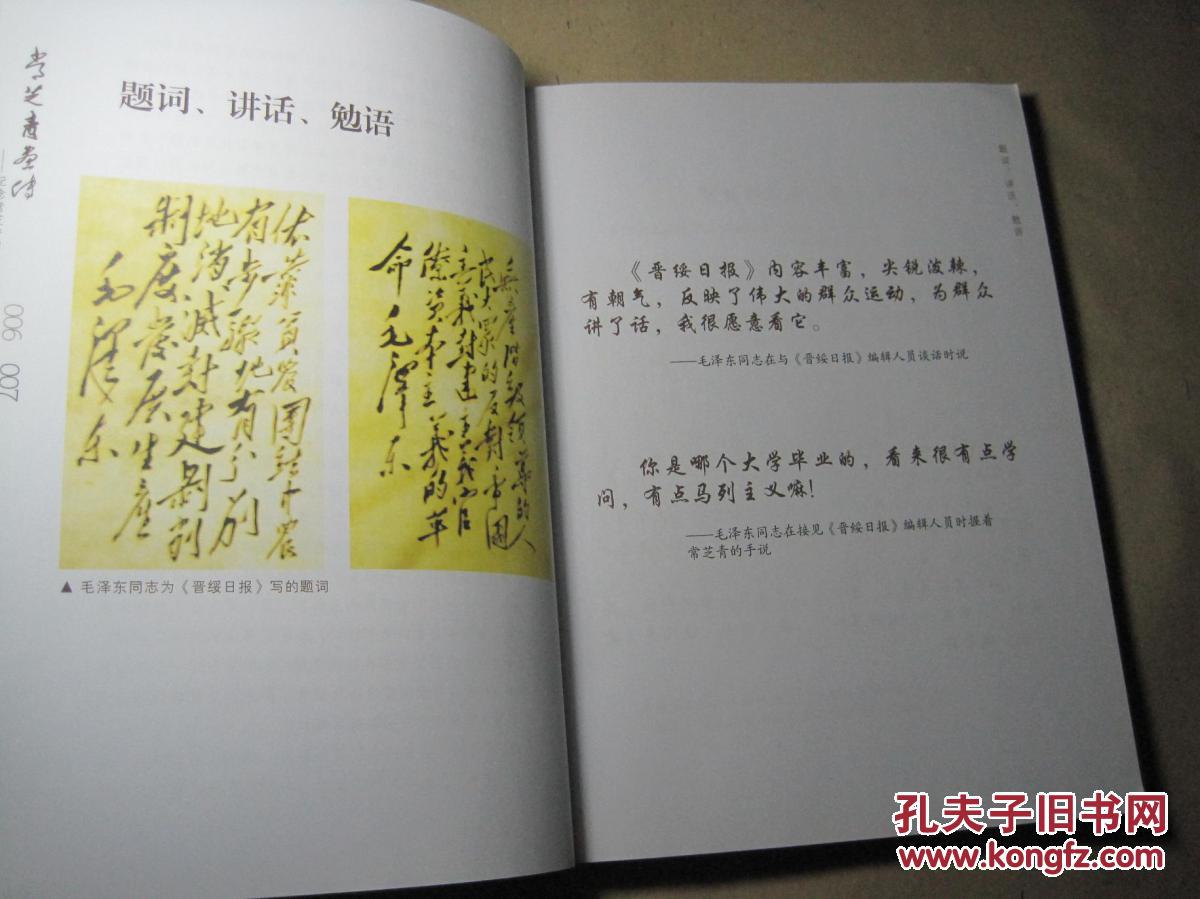 常芝青画传
006 007
题词、讲话、勉语
依靠貧農團結中農
有步驟地有分别
地消滅封建剥削
制度發展生產
毛澤東
無產階級領導的人
民大眾的反對帝國
主義封建主義和官
僚資本主義的革
命 毛澤東
▲ 毛泽东同志为《晋绥日报》写的题词
题词、讲话、勉语
《晋绥日报》内容丰富，尖锐泼辣，
有朝气，反映了伟大的群众运动，为群众
讲了话，我很愿意看它。
——毛泽东同志在与《晋绥日报》编辑人员谈话时说
你是哪个大学毕业的，看来很有点学
问，有点马列主义嘛！
——毛泽东同志在接见《晋绥日报》编辑人员时握着
常芝青的手说
孔夫子旧书网
www.kongfz.com